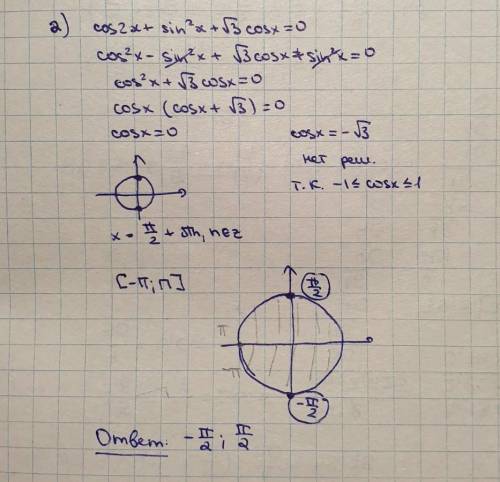 2) cos2x + sin²x + √3 cosx = 0
cos²x - sin²x + √3 cosx + sin²x = 0
cos²x + √3 cosx = 0
cosx (cosx + √3) = 0
cosx = 0 cosx = -√3
нет реш.
т.к. -1 ≤ cosx ≤ 1
x = π/2 + πn, n∈z
[-π; π]
π/2
π
-π
-π/2
Ответ: -π/2; π/2